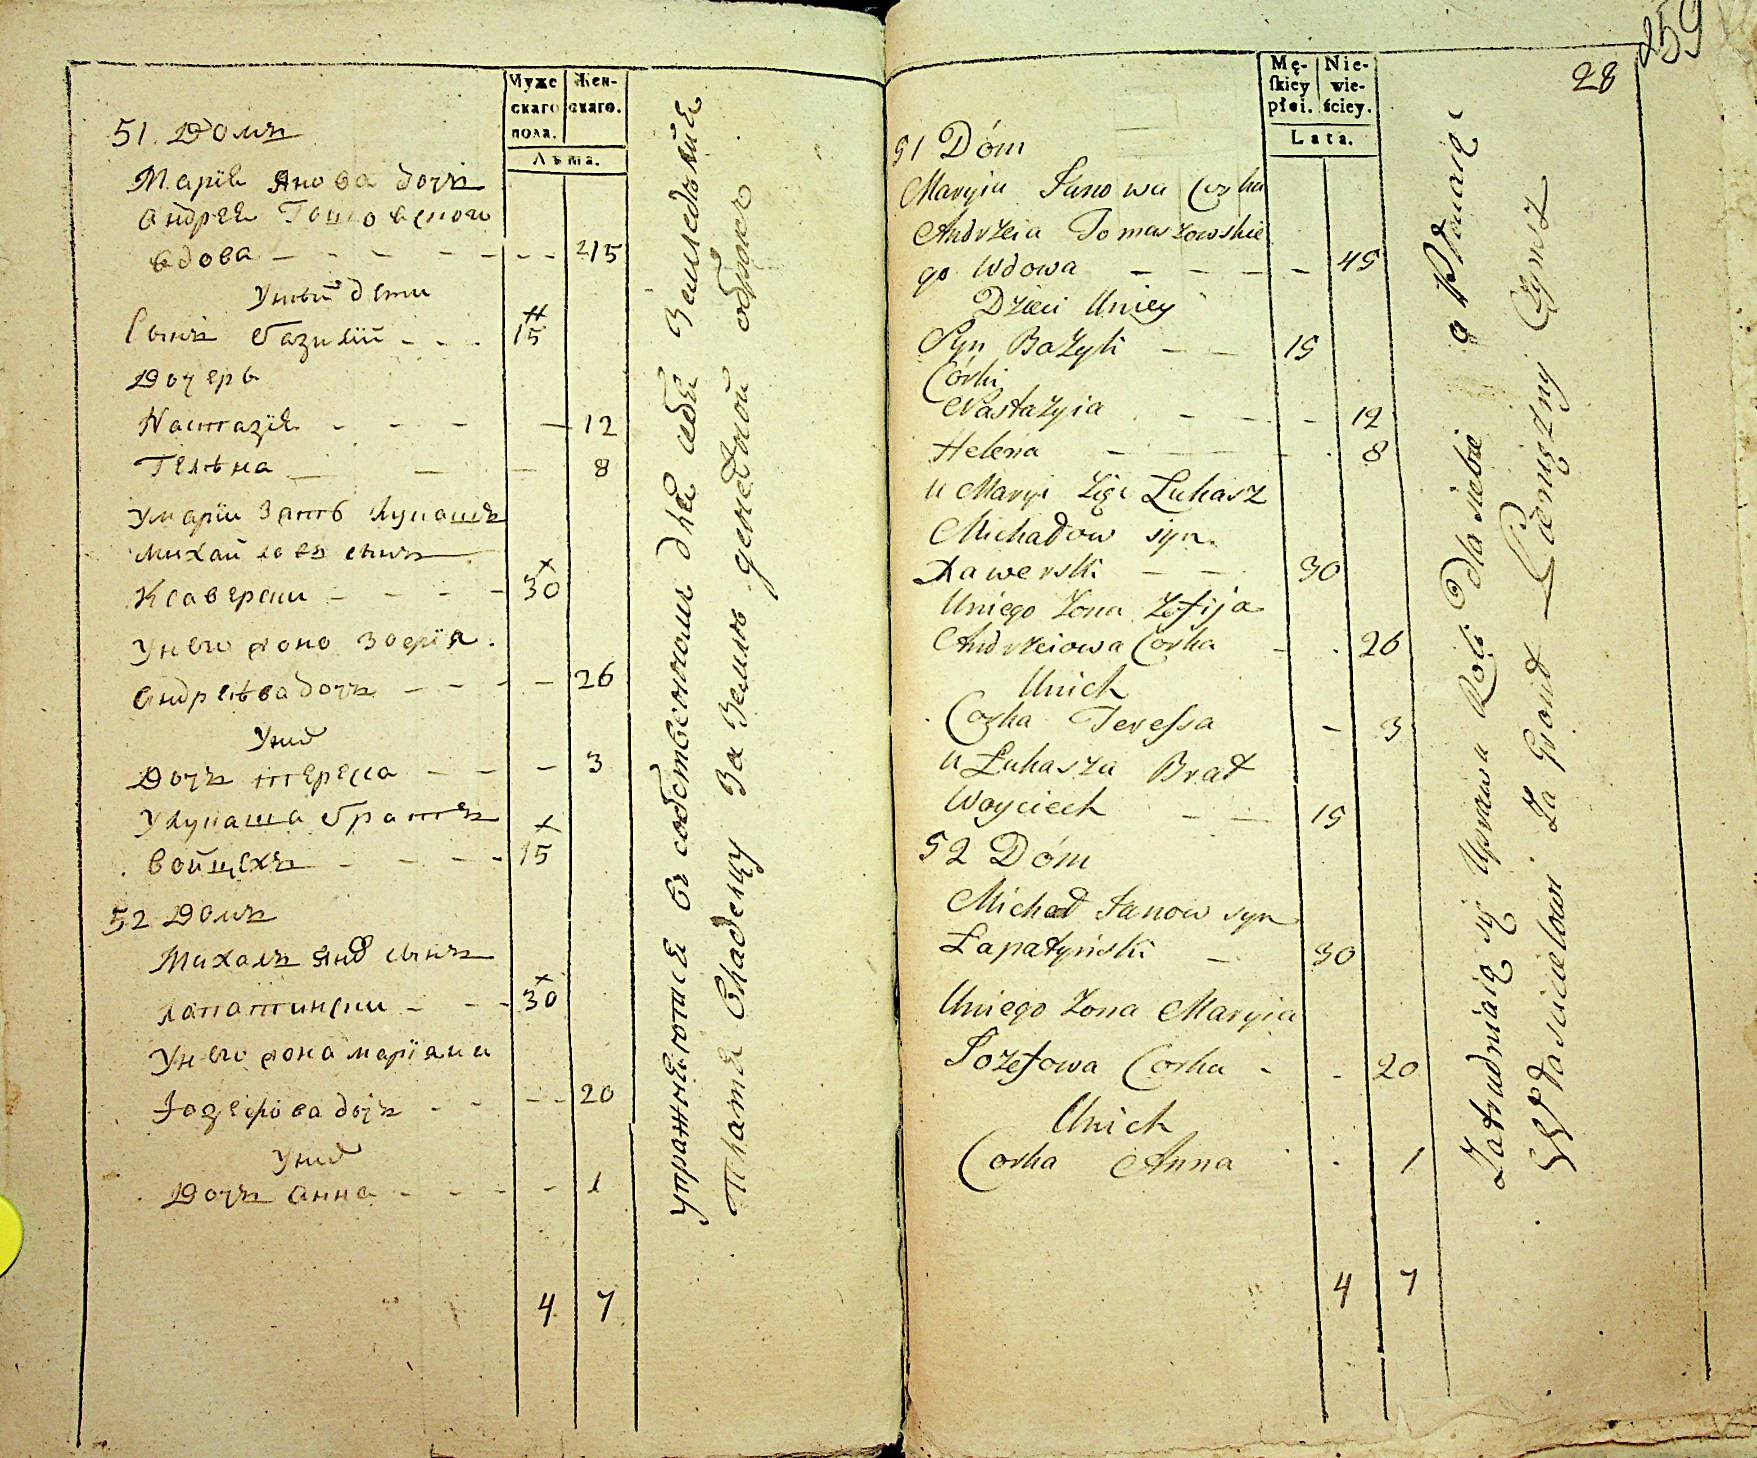 Муже
скаго
пола.
Жен-
скаго.
Лѣта.
51. Домъ
Марія Янова дочъ
Андрея
вдова - - - - - - - 45
Унѣй дети
Сынъ базилій - - - 15
Дочерь
Настазія - - - - 12
Гелѣна - - - 8
Умаріи Зять Лукашъ
Михайловъ сынъ
Ксаверски - - - - 30
Унего жона Зофія.
Андрѣева дочъ - - - - 26
Уних
Дочъ тересса - - - 3
Улукаша братъ
войцехъ - - - - 15
52 Домъ
Михалъ Янов сынъ
лапатински - - - 30
Унего жона маріяна
Іозефова дочъ - - - - 20
Уних
Дочъ анна - - - - 1
4 7
упражняются въ собственномъ для себя Земледѣліи
Платя Владелцу За Землю денежной оброкъ
259
28
Mę-
skiey
płci.
Nie-
wie-
ściey.
Lata.
51 Dóm
Maryia Janowa Corka
Andrzeia Tomaszowskie
go Wdowa - - - - 45
Dzieci Uniey
Syn Bazyli - - 15
Córki
Nastazyia - - - 12
Helena - - - - 8
u Maryi Zięc Lukasz
Michałow syn
Xawerski - - 30
Uniego Zona Zofija
Andrzeiowa Corka - . 26
Unich
Corka Teressa - 3
u Łukasza Brat
Woyciech - - 15
52 Dóm
Michał Janow syn
Łapatyński - 30
Uniego Zona Maryia
Jozefowa Corka - - 20
Unich
Corka Anna . 1
4 7
Zatrudniaią się Uprawa Roli dla siebie
Własicielowi Za Grónt Pienięzny Czynsz